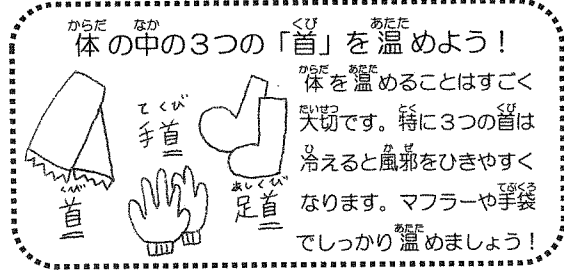 体の中の3つの「首」を温めよう！
体を温めることはすごく
大切です。特に3つの首は
冷えると風邪をひきやすく
なります。マフラーや手袋
でしっかり温めましょう！
首
手首
足首